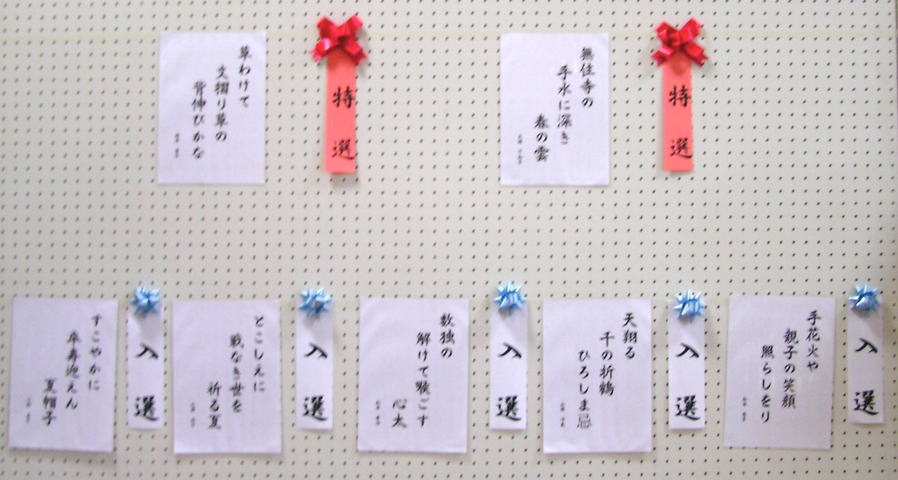 無住寺の
手水に深き
春の雲
特選
草わけて
文摺り草の
背伸びかな
特選
手花火や
親子の笑顔
照らしをり
入選
天翔る
千の折鶴
ひろしま忌
入選
数独の
解けて喉ごす
心太
入選
とこしえに
戦なき世を
祈る夏
入選
すこやかに
卒寿迎えん
夏帽子
入選